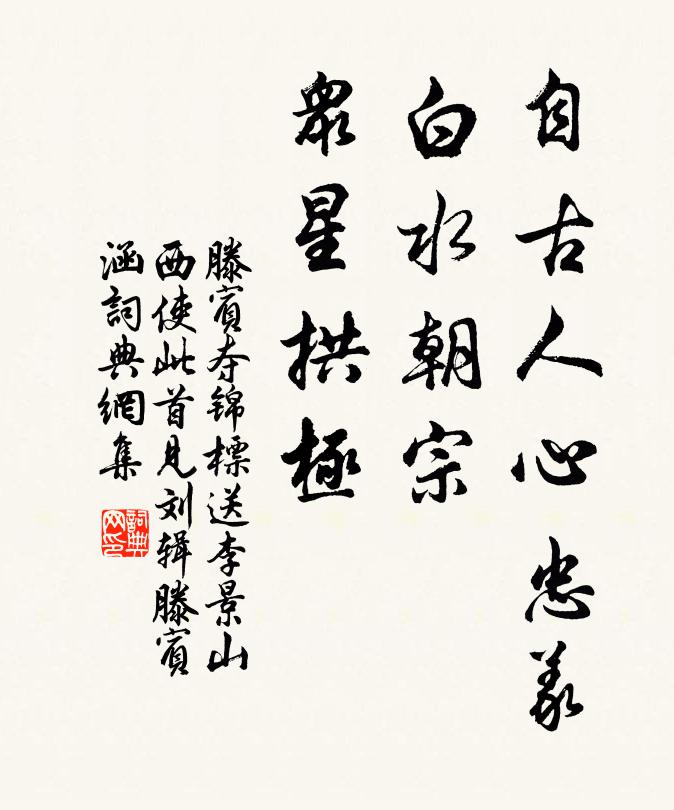 自古人心忠義
白水朝宗
眾星拱極
滕賓夺锦標送李景山
西使此首見刘辑滕賓
涵詞典網集
詞典网印